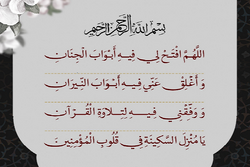 بسم الله الرحمن الرحیم
اللَّهُمَّ افْتَحْ لِي فِيهِ أَبْوَابَ الْجِنَانِ
وَ أَغْلِقْ عَنِّي فِيهِ أَبْوَابَ النِّيرَانِ
وَ وَفِّقْنِي فِيهِ لِتِلَاوَةِ الْقُرْآنِ
يَا مُنْزِلَ السَّكِينَةِ فِي قُلُوبِ الْمُؤْمِنِينَ